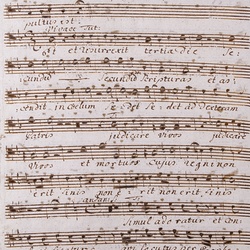 pultus est:
Vivace Tut:
Et resurrexit tertia die Se:
cundu Secundu Scripturas et as:
cendit in Coelum Se det Se: det ad Dexteram
Patris judicare Vivos judicare
Vivos et mortuos cujus regni non
erit finis non erit non erit finis
Andante
Simul ado ratur et con: